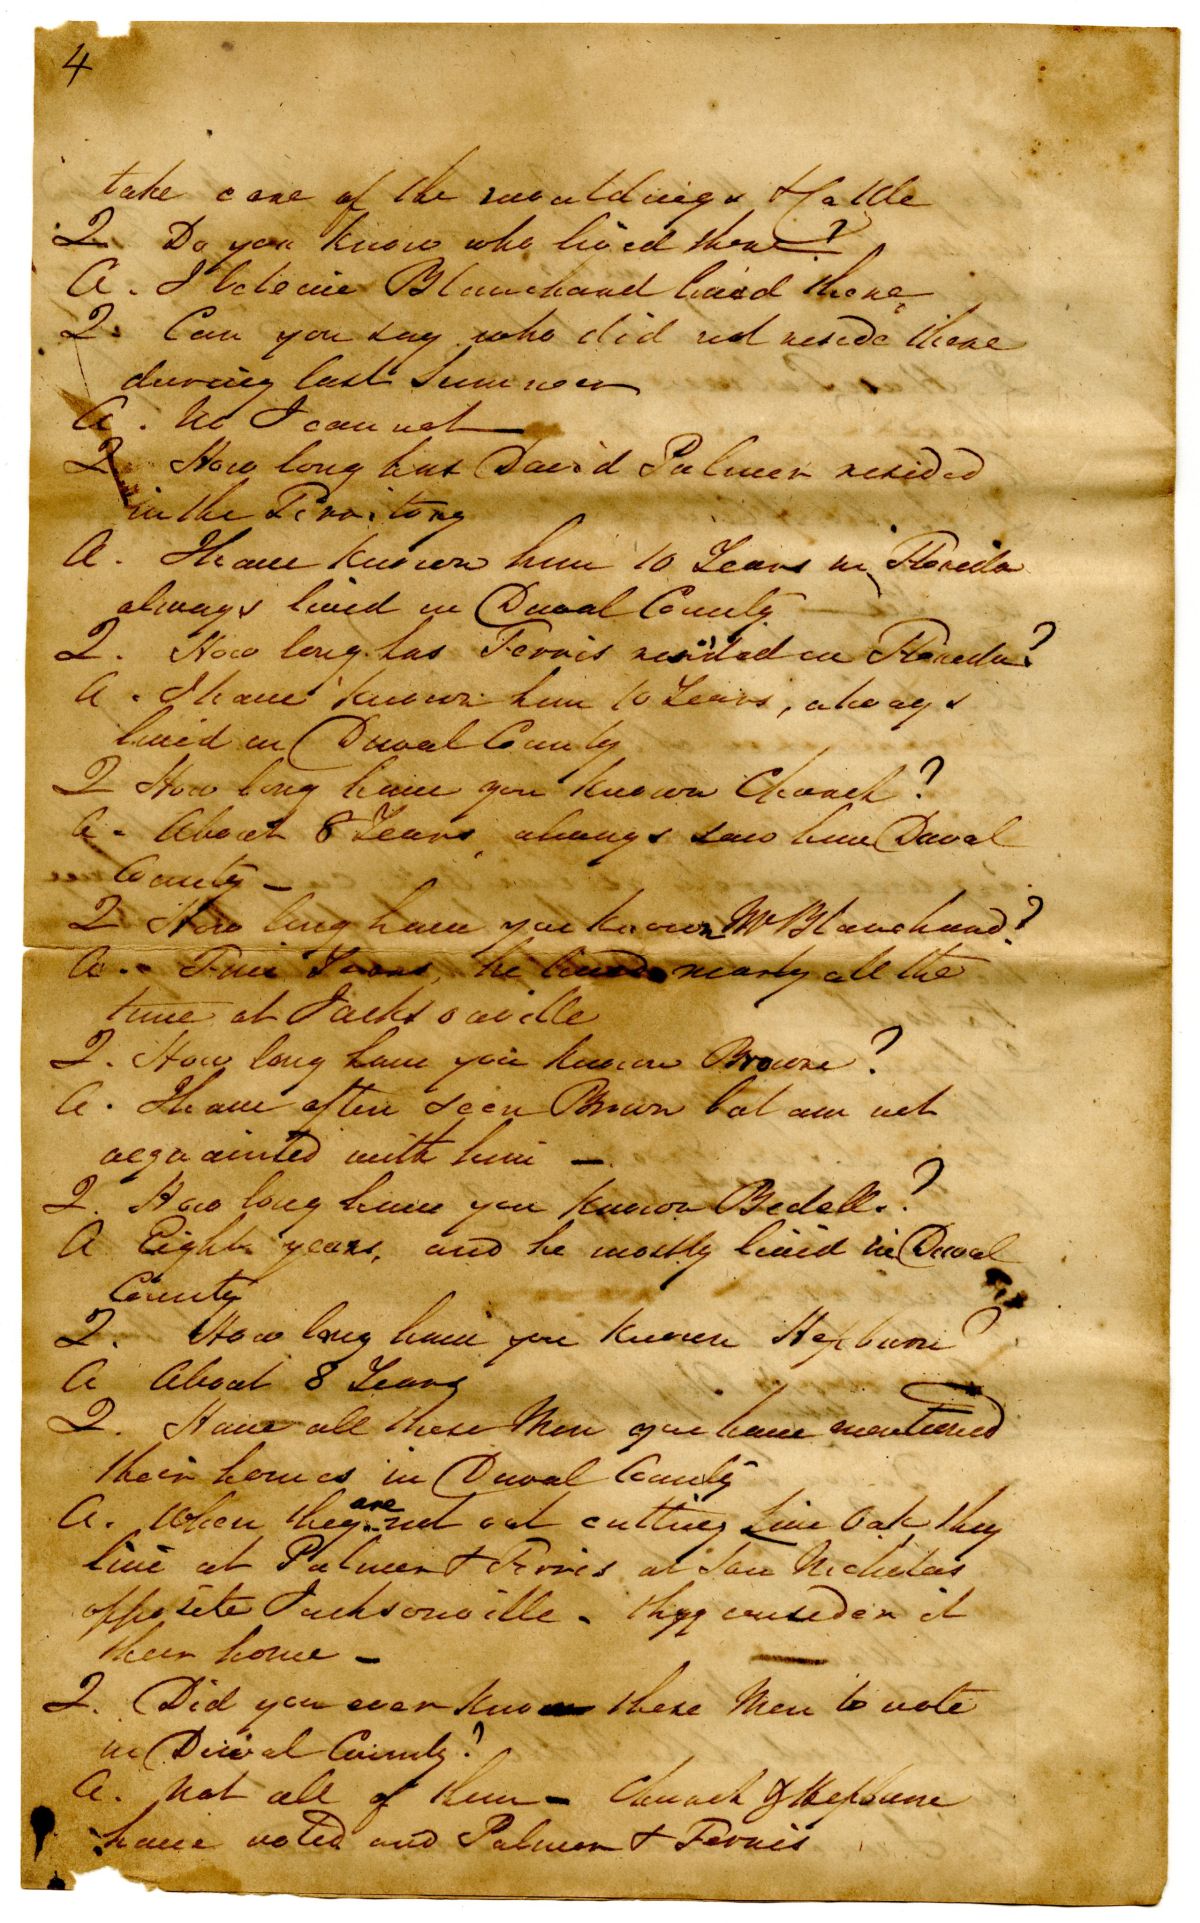 4
take care of the mouldings & Cattle
Q. Do you know who lived there?
A. I beleive Blanchard lived there
Q. Can you say who did not reside there
during last Summer
A. No I can not
Q. How long has David Palmer resided
in the Territory
A. I have known him 10 Years in Florida
always lived in Duval County
Q. How long has Ferris resided in Florida?
A. I have known him 10 Years, always
lived in Duval County
Q How long have you known Church?
A. About 8 Years, always saw him Duval
County
Q How long have you known Mr Blanchard?
A. Five Years, he lived nearly all the
time at Jacksonville
Q. How long have you known Browne?
A. I have often seen Brown but am not
acquainted with him
Q. How long have you known Bedell?
A Eight years, and he mostly lived in Duval
County
Q. How long have you known Hepburn?
A About 8 Years
Q. Have all these Men you have mentioned
their homes in Duval County
A. When they are not out cutting Live Oak they
live at Palmer & Ferris at San Nicholas
opposite Jacksonville - they consider it
their home -
Q. Did you ever know these Men to vote
in Duval County?
A. Not all of them - Church & Hepburne
have voted and Palmer & Ferris